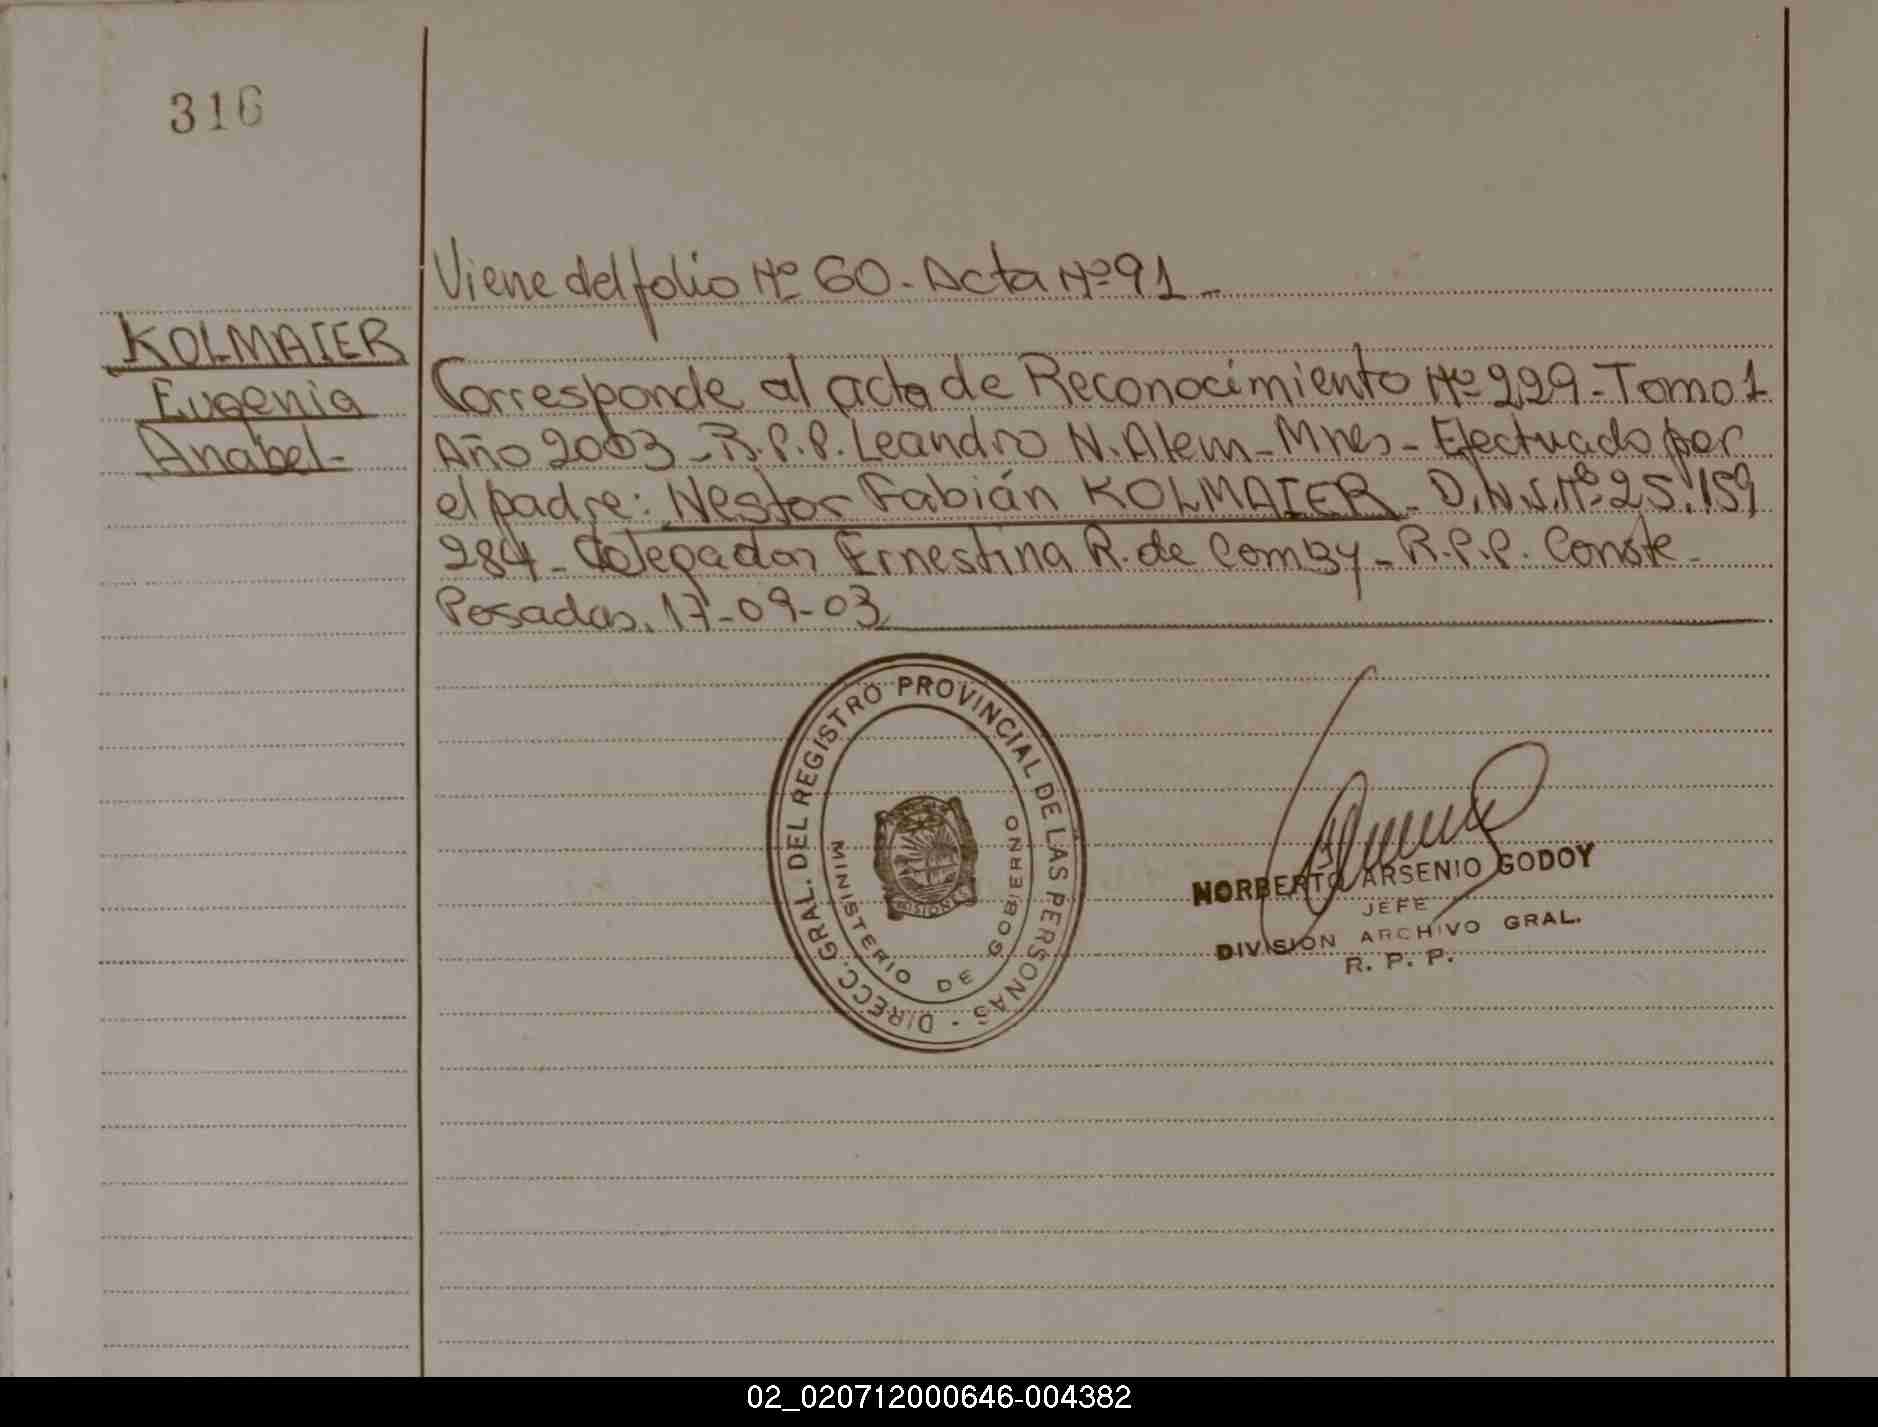 316
Viene del folio Nº 60 - Acta Nº 91 -
KOLMAIER
Eugenia
Anabel -
Corresponde al acta de Reconocimiento Nº 229 - Tomo 1
Año 2003 - R.P.P. Leandro N. Alem - Mnes - Efectuado por
el padre: Nestor Fabián KOLMAIER - D.N.I. Nº 25.159
284 - Delegada Ernestina R. de - R.P.P. Conste -
Posadas, 17-09-03
DIRECC. GRAL. DEL REGISTRO PROVINCIAL DE LAS PERSONAS -
MINISTERIO DE GOBIERNO
MISIONES
NORBERTO ARSENIO GODOY
JEFE
DIVISION ARCHIVO GRAL.
R. P. P.
02_020712000646-004382